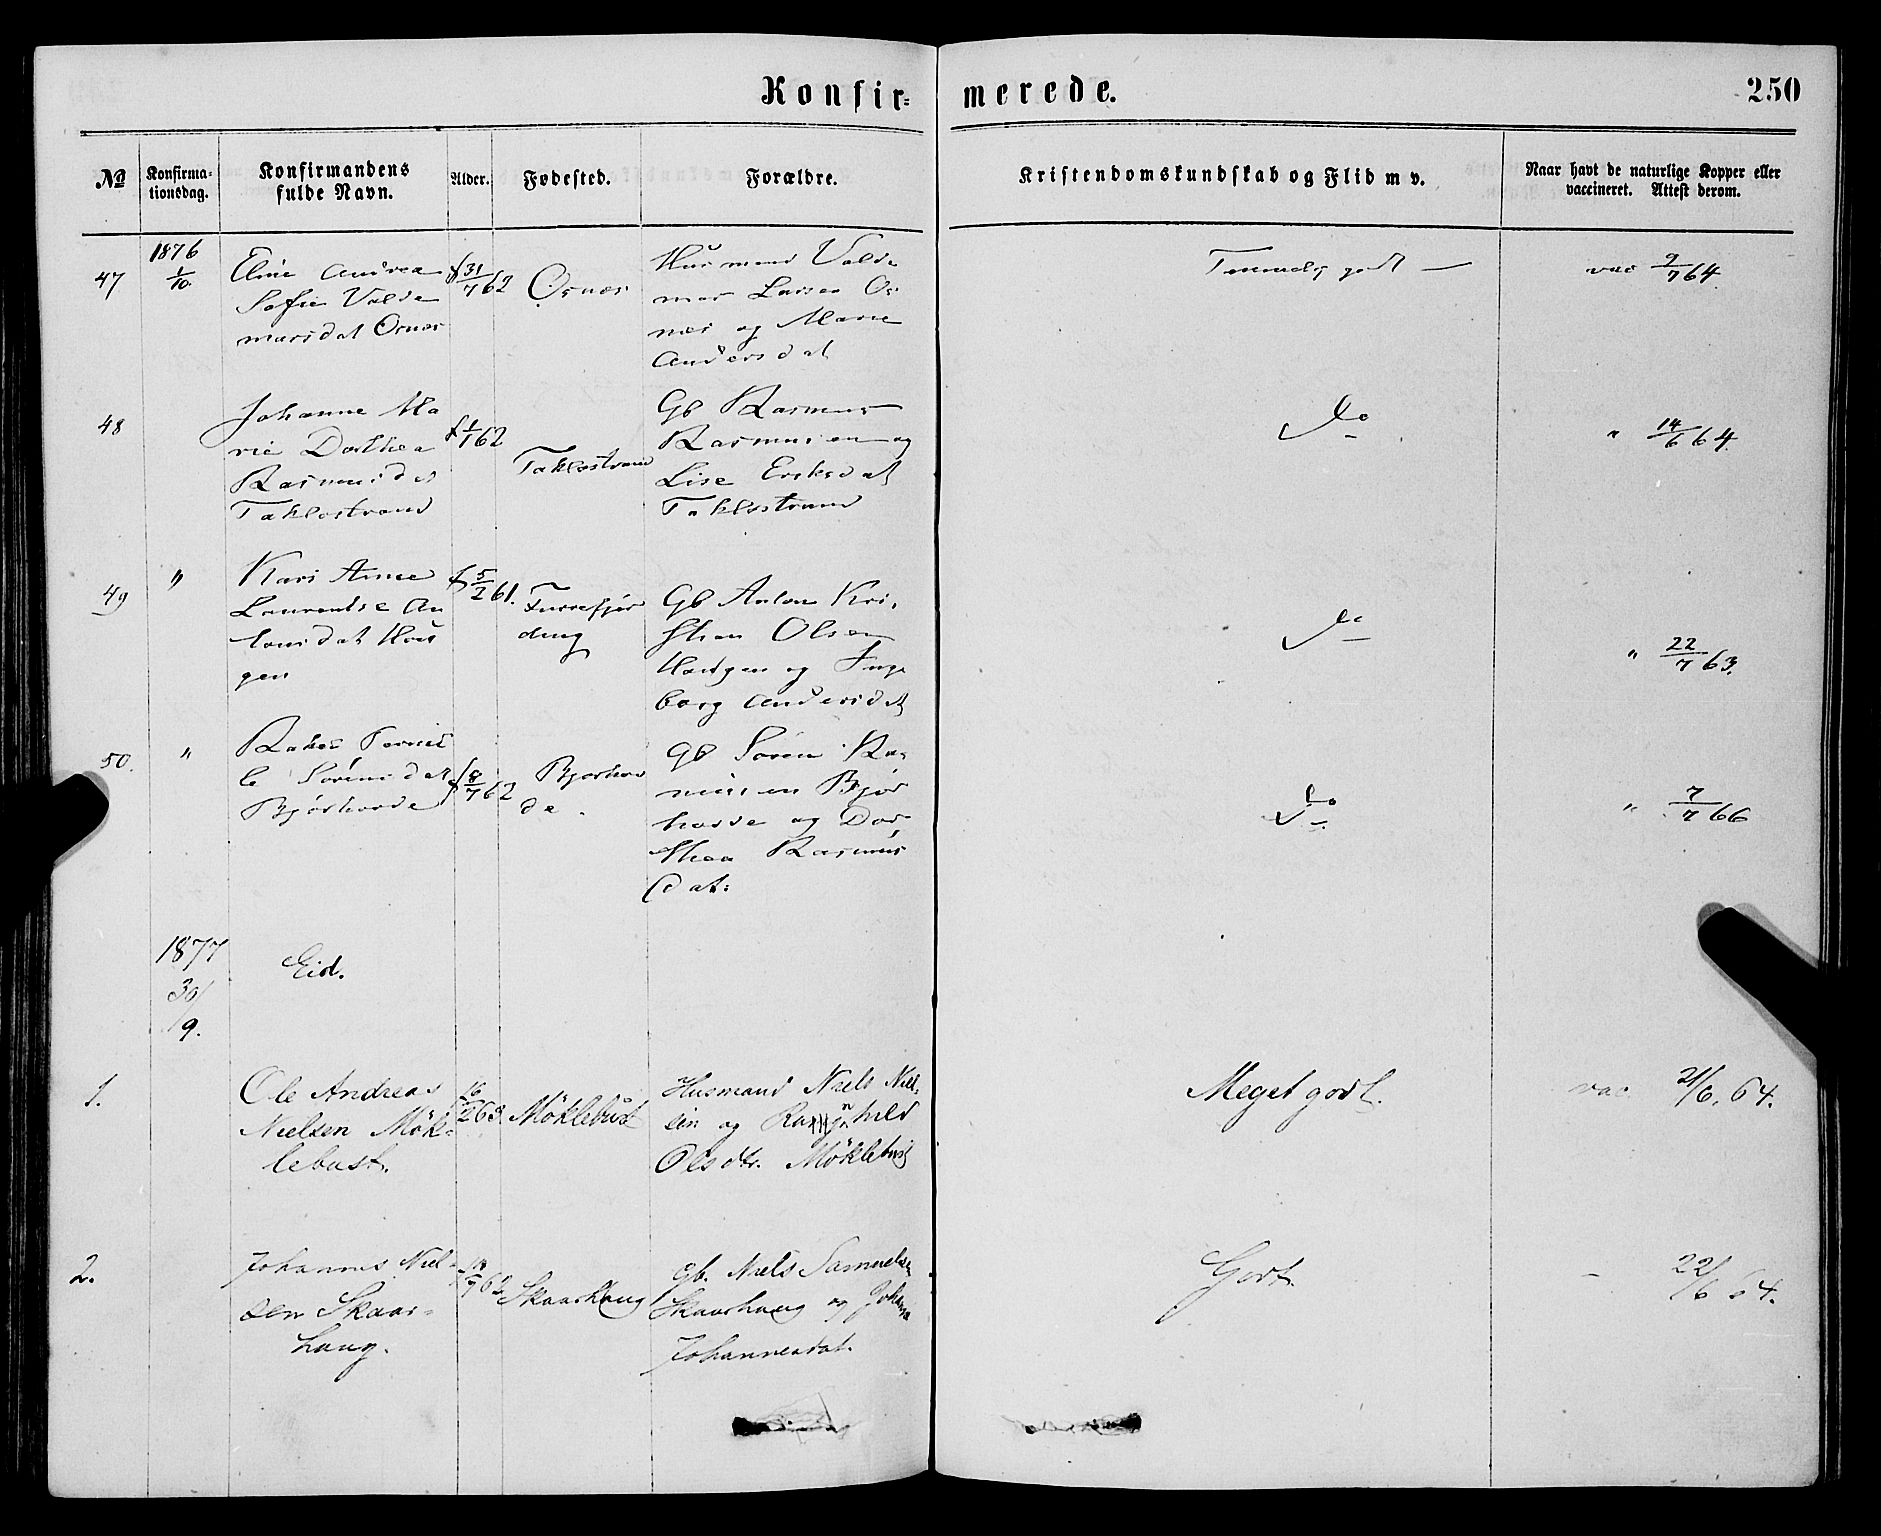 Konfir=
merede.
250
No
Konfirma-
tionsdag.
Konfirmandens
fulde Navn.
Alder.
Fødested.
Forældre.
Kristendomskundskab og Flid m v.
Naar havt de naturlige Kopper eller
vaccineret. Attest derom.
47
1876
1/10
Eline Andrea
Sofie Valde
marsdat Osnes
f 31/7 62
Osnes
Husmand Valde
mar Larsen Os
nes og Marie
Andersdat
Temmelig godt —
vac 9/7 64.
48
Johanne Ma
rie Dorthea
Rasmusdat
Taklostrand
f 1/1 62
Taklostrand
Gb Rasmus
Rasmussen og
Lise Eriksdat
Taklostrand
Do
" 14/6 64.
49
"
Kari Anne
Laurentse An
tonsdat Hou
gen
f 5/2 61.
Furrefjor
ding
Gb Anton Kri.
stian Olsen
Hougen og Inge
borg Andersdat
Do
" 22/7 63.
50.
"
Rakel Pernil
le Sørensdat
Bjørhovde
f 8/7 62
Bjorhov
de.
Gb Søren Ras
mussen Bjør
hovde og Dor
thea Rasmus
dat:
Do
" 7/7 66
1877
30/
/9.
Eid.
1.
Ole Andreas
Nielsen Mök-
lebust.
16/2 63.
Möklebust
Husmand Niels Niel-
sen og Ragnhild
Olsdtr. Möklebust
Meget godt.
vac 21/6. 64.
2.
Johannes Niel-
sen Skaar-
haug.
Skaarhaug
gb. Niels Samuelsen
Skaarhaug og Johanna
Johannesdat.
Godt.
– 22/6 64.